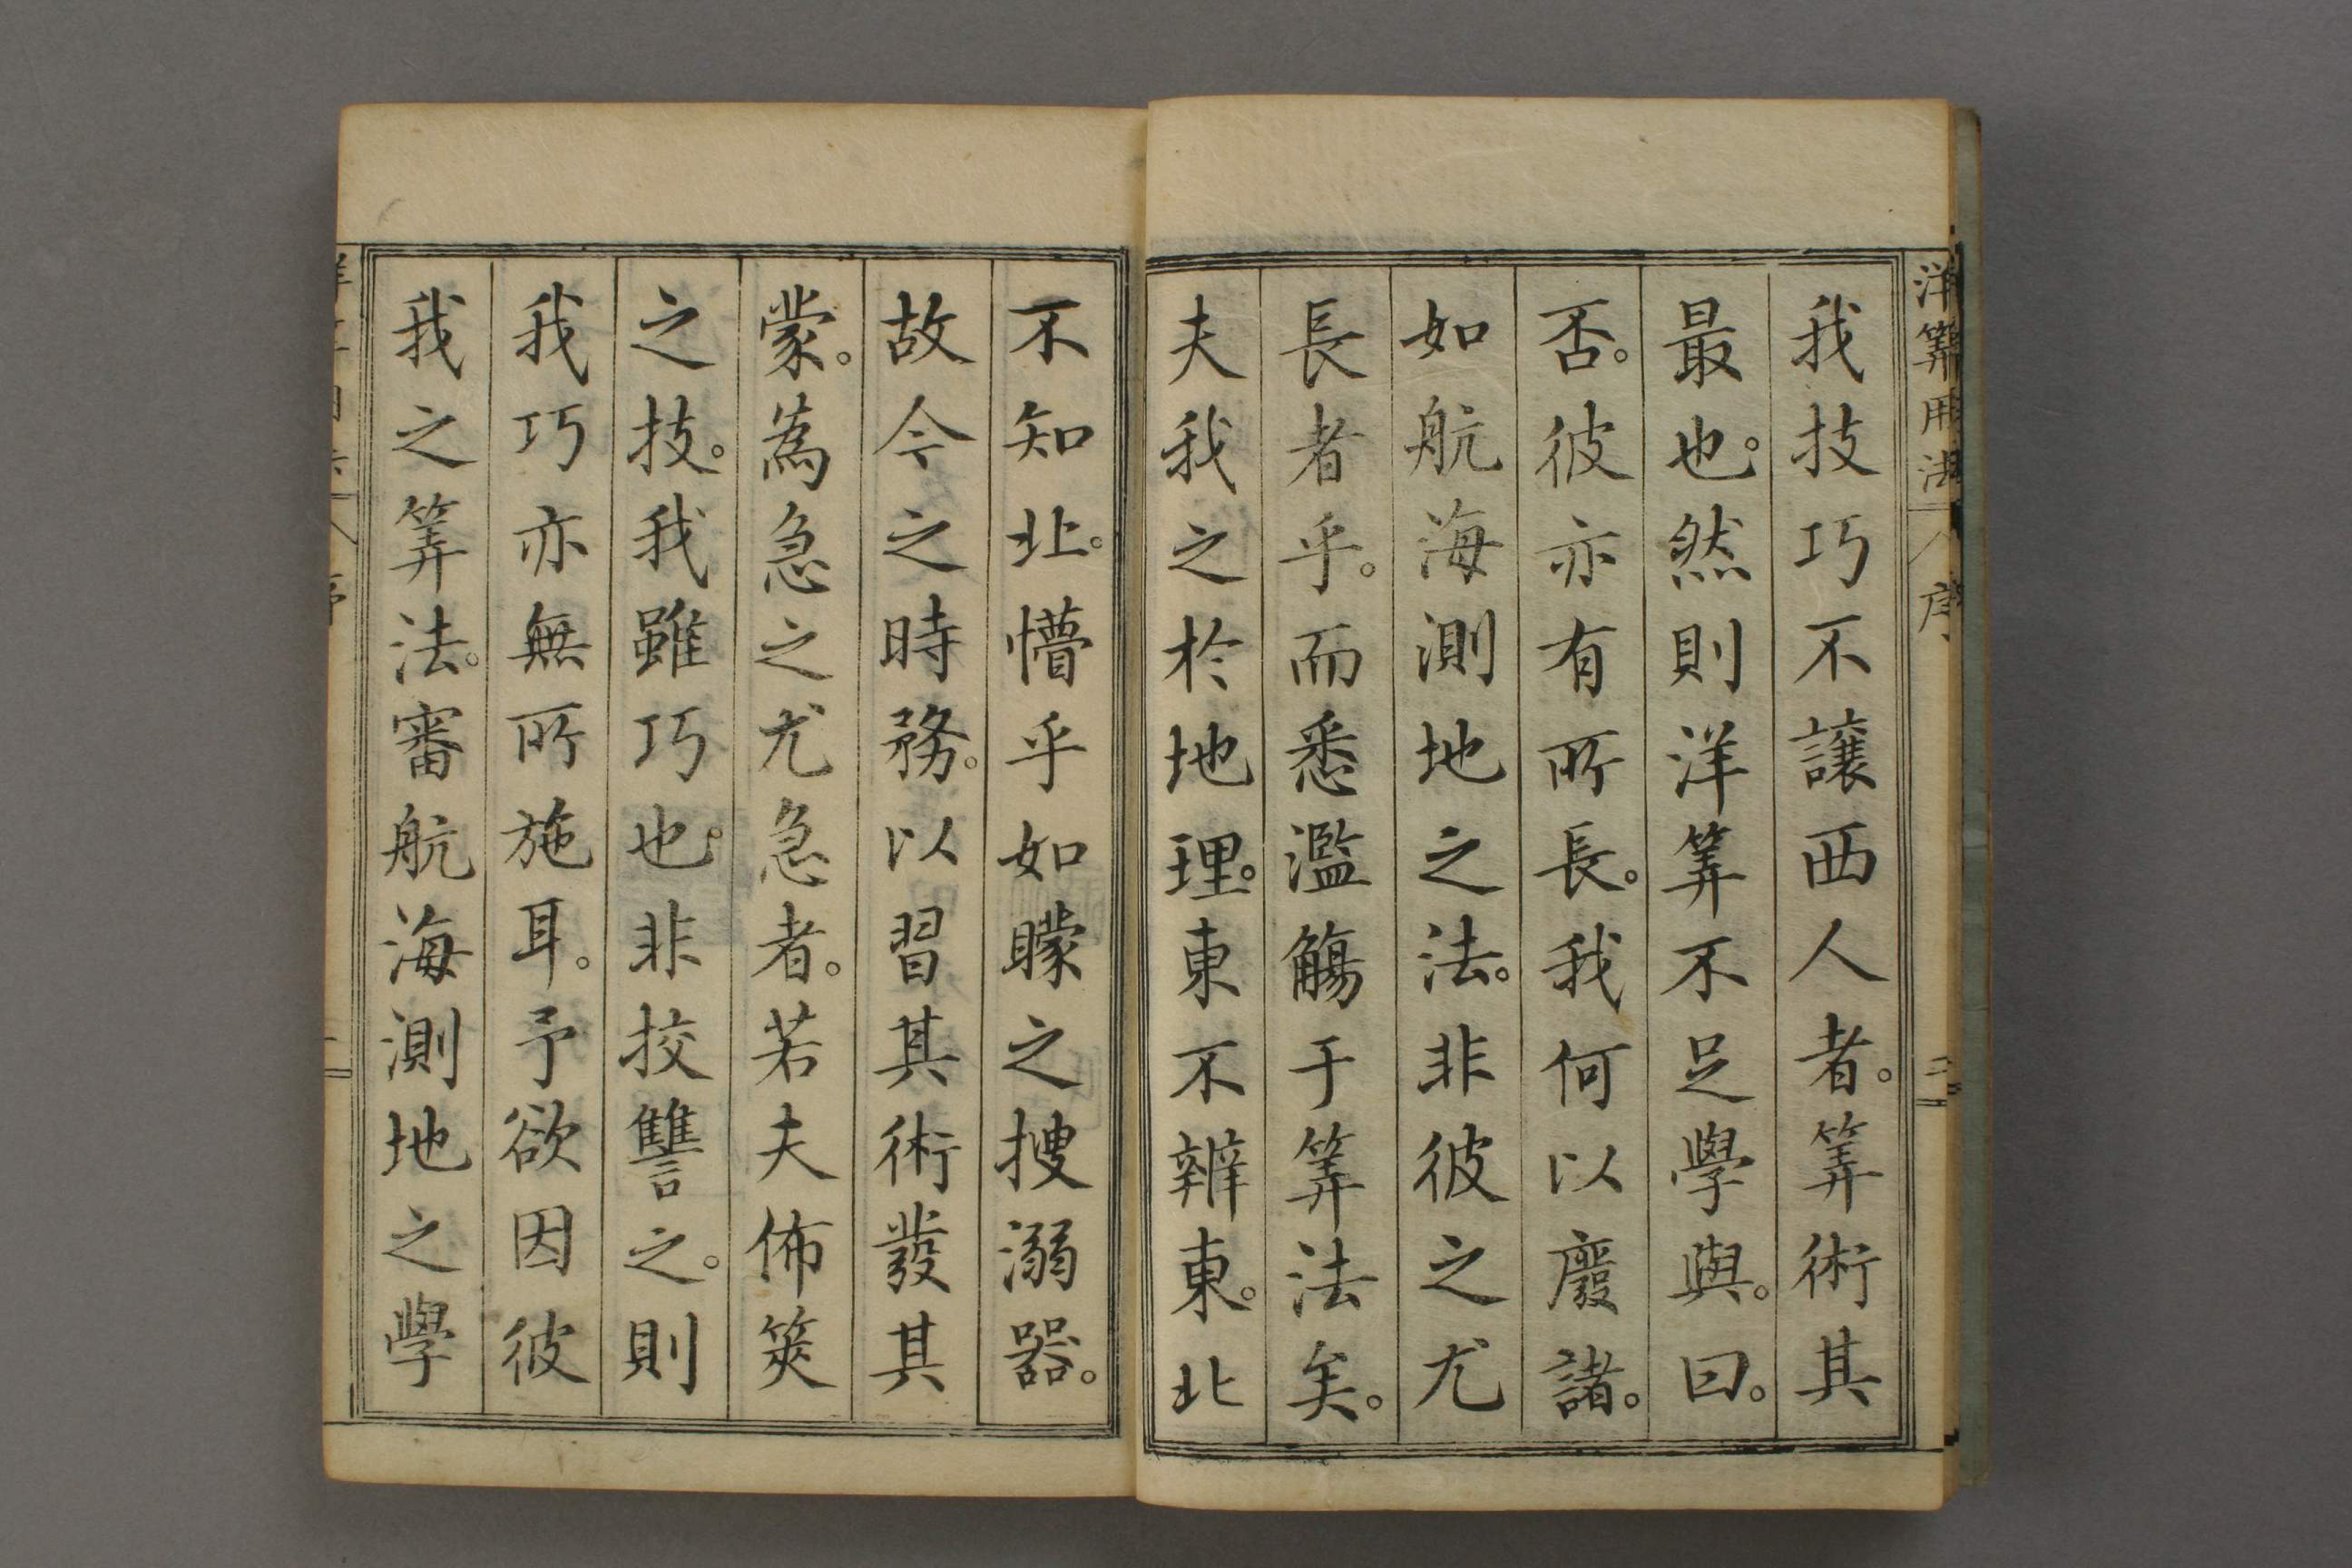 洋筭用法 序 二
我技巧不譲西人者。筭術其
最也。然則洋筭不足學與。曰。
否。彼亦有所長。我何以廢諸。
如航海測地之法。非彼之尤
長者乎。而悉濫觴于筭法矣。
夫我之於地理。東不辨東。北
不知北。懵乎如矇之搜溺器。
故今之時務。以習其術發其
蒙。為急之尤急者。若夫佈筴
之技。我雖巧也。非挍讐之。則
我巧亦無所施耳。予欲因彼
我之筭法。審航海測地之學